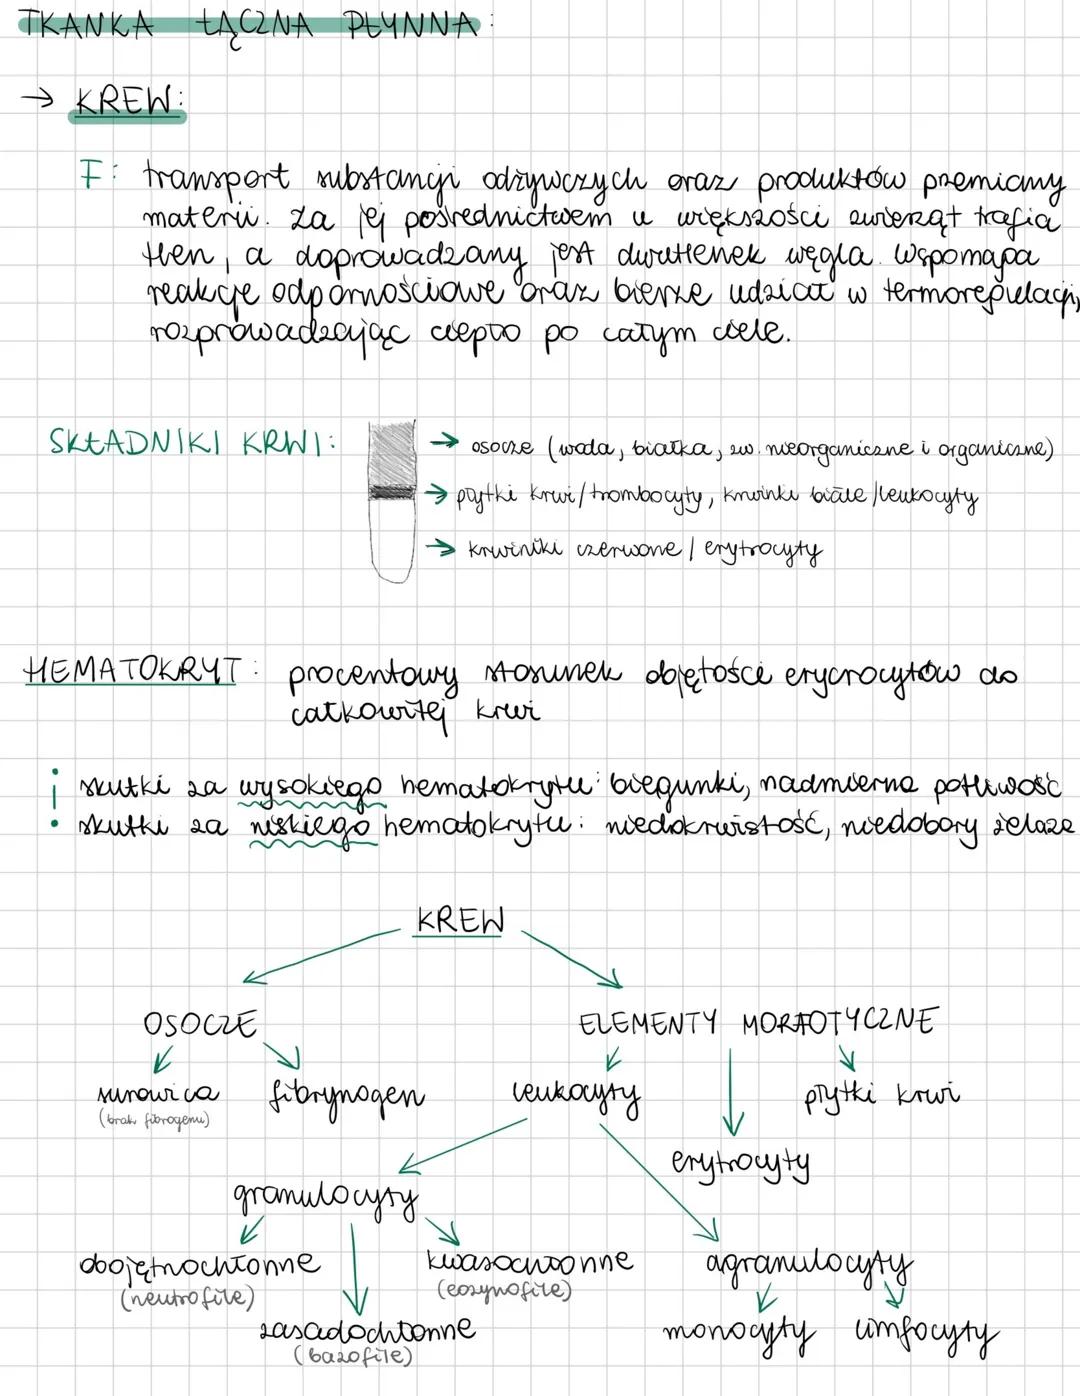 TKANKA ŁĄCZNA PŁYNNA:
→ KREW:
F: transport substancji odżywczych oraz produktów przemiany
materii. Za jej pośrednictwem u większości zwierząt trafia
tlen, a doprowadzany jest dwutlenek węgla. Wspomaga
reakcje odpornościowe oraz bierze udział w termoregulacji,
rozprowadzając ciepło po całym ciele.
SKŁADNIKI KRWI:
→ osocze (woda, białka, zw. nieorganiczne i organiczne)
→ płytki krwi/trombocyty, krwinki białe/leukocyty
→ krwiniki czerwone / erytrocyty
HEMATOKRYT: procentowy stosunek objętości erycrocytów do
całkowitej krwi
skutki za wysokiego hematokrytu: biegunki, nadmierna potliwość
• skutki za niskiego hematokrytu: niedokrwistość, niedobory żelaza
KREW
OSOCZE ELEMENTY MORFOTYCZNE
surowica fibrynogen leukocyty płytki krwi
(brak fibrogenu)
erytrocyty
granulocyty
obojętnochłonne kwasochłonne agranulocyty
(neutrofile) (eozynofile)
zasadochłonne monocyty limfocyty
(bazofile)